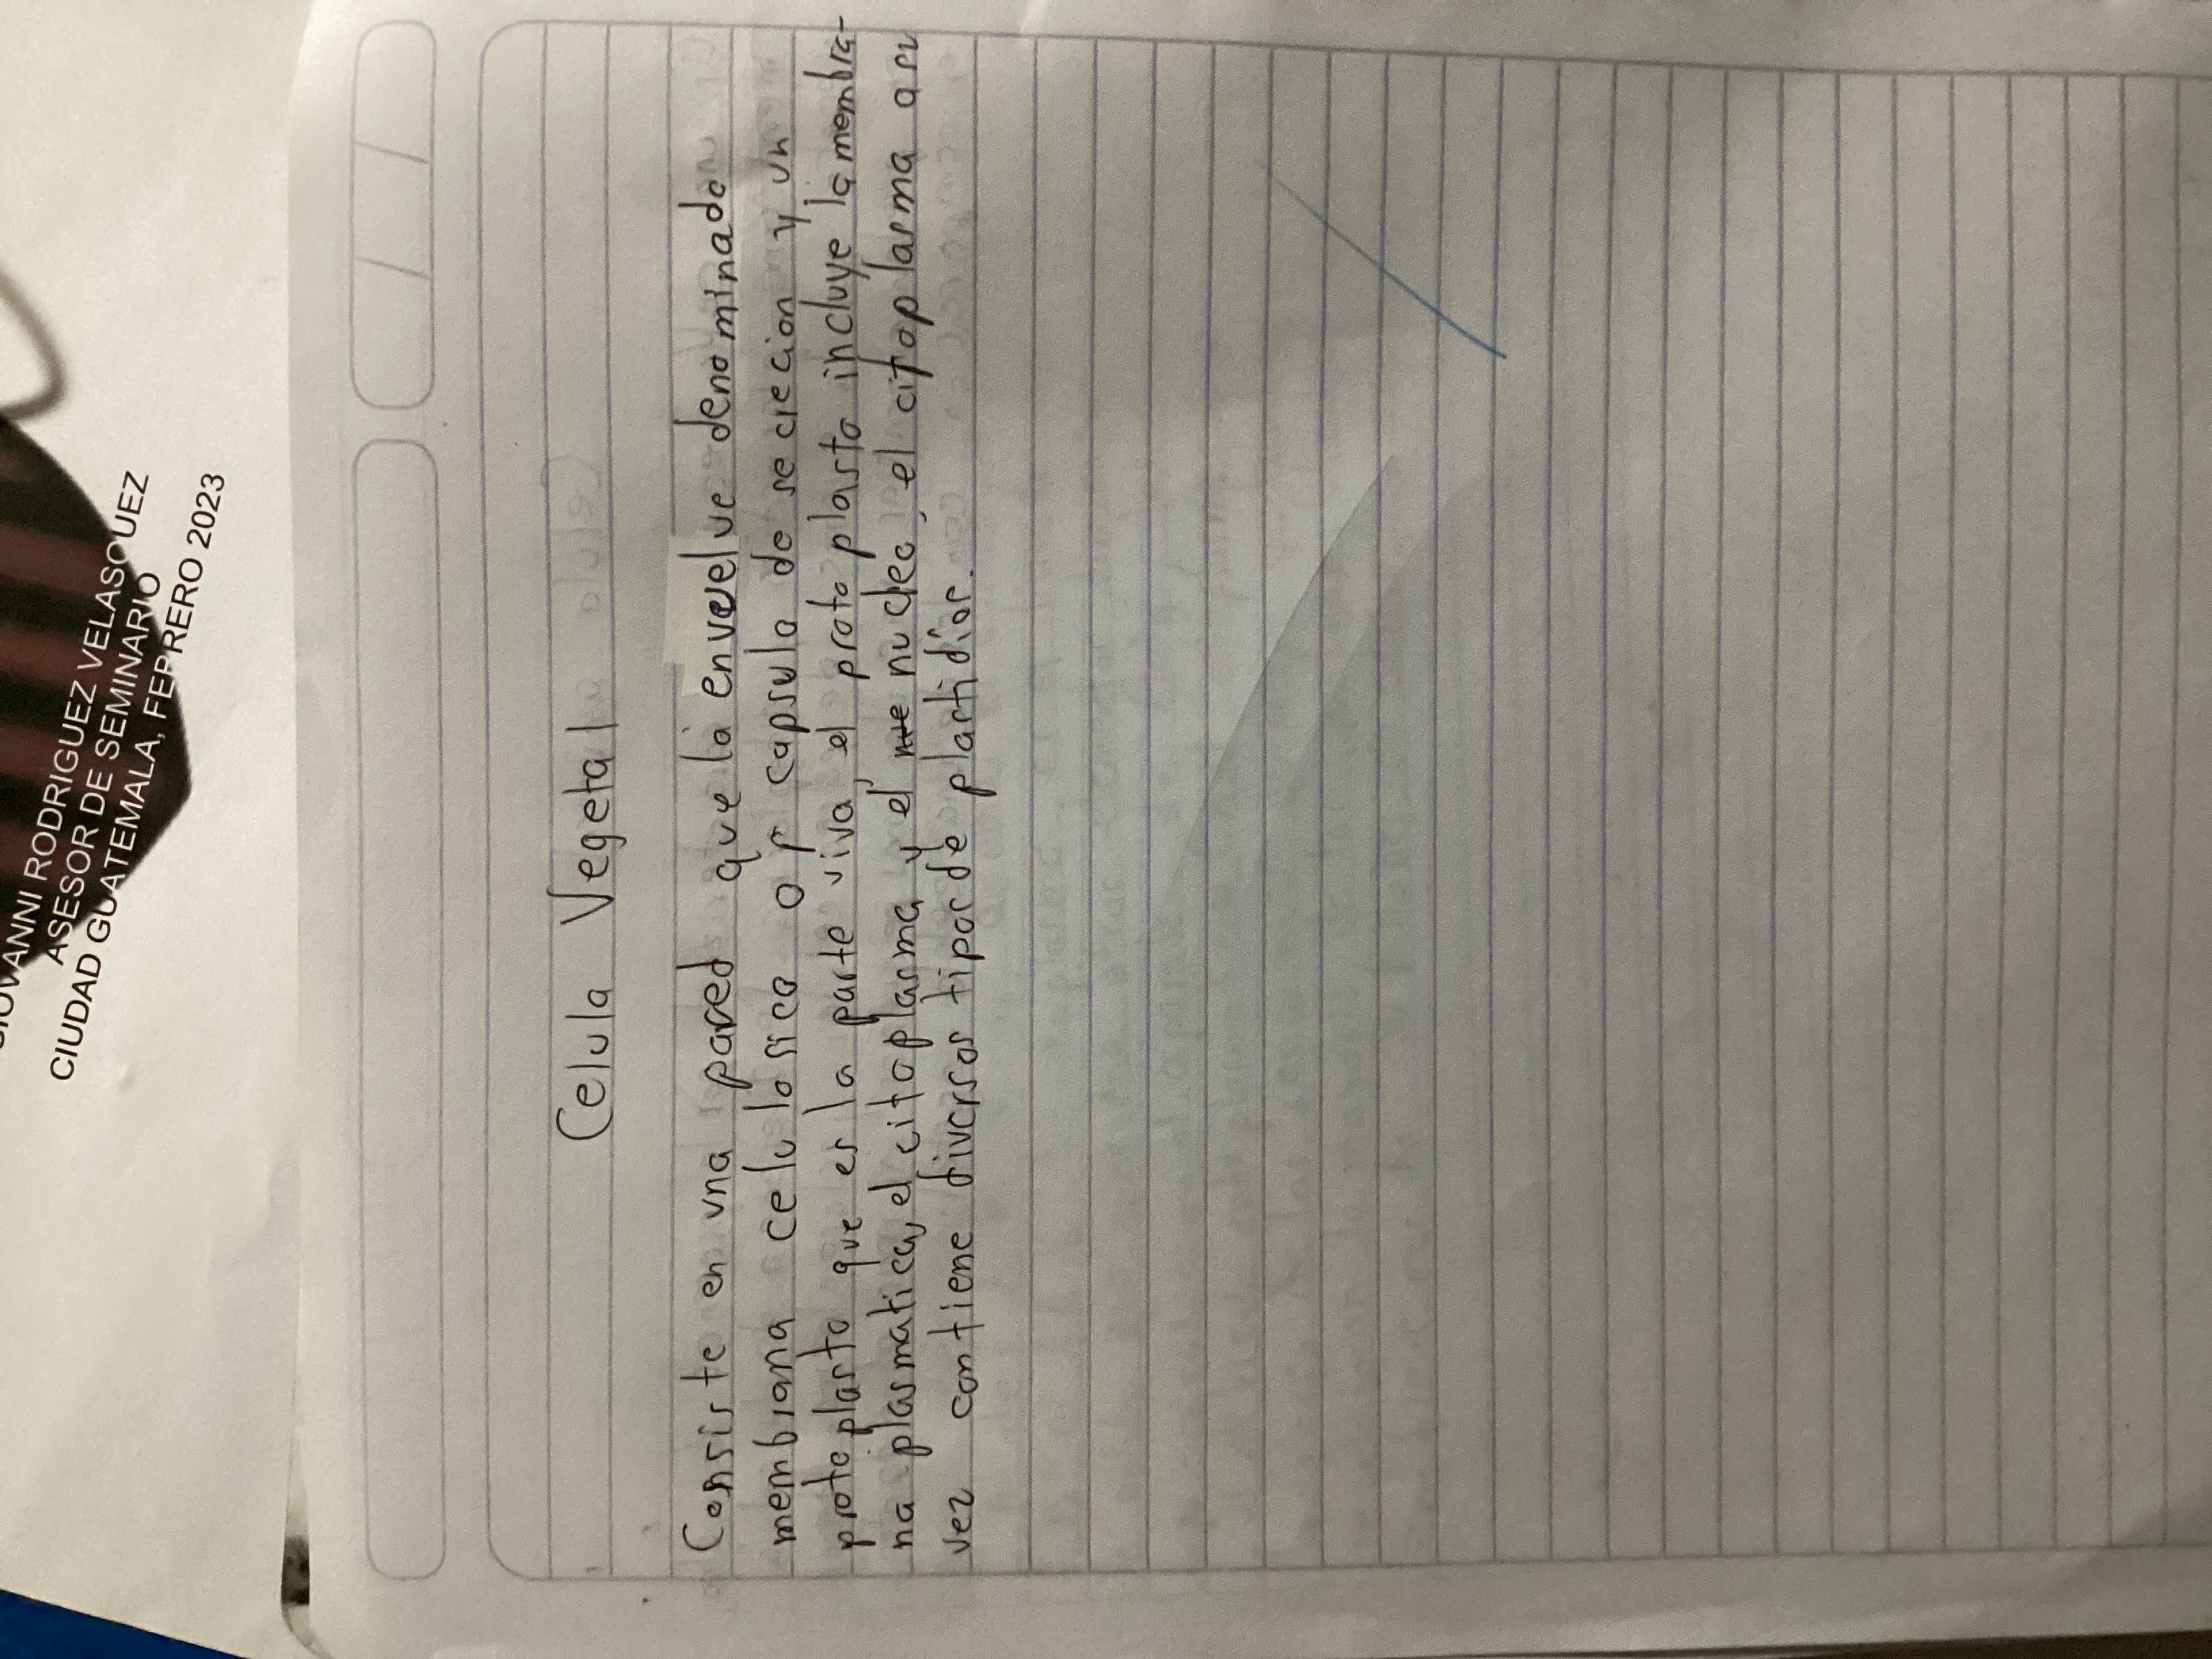 ANNI RODRIGUEZ VELASQUEZ
ASESOR DE SEMINARIO
CIUDAD GUATEMALA, FEBRERO 2023
Celula Vegetal
Consiste en una pared que la envuelve denominado
membrana celulosica o capsula de secrecion y un
protoplasto que es la parte viva, el protoplasto incluye la membra-
na plasmatica, el citoplasma y el nucleo, el citoplasma a su
vez contiene diversos tipos de plastidios.